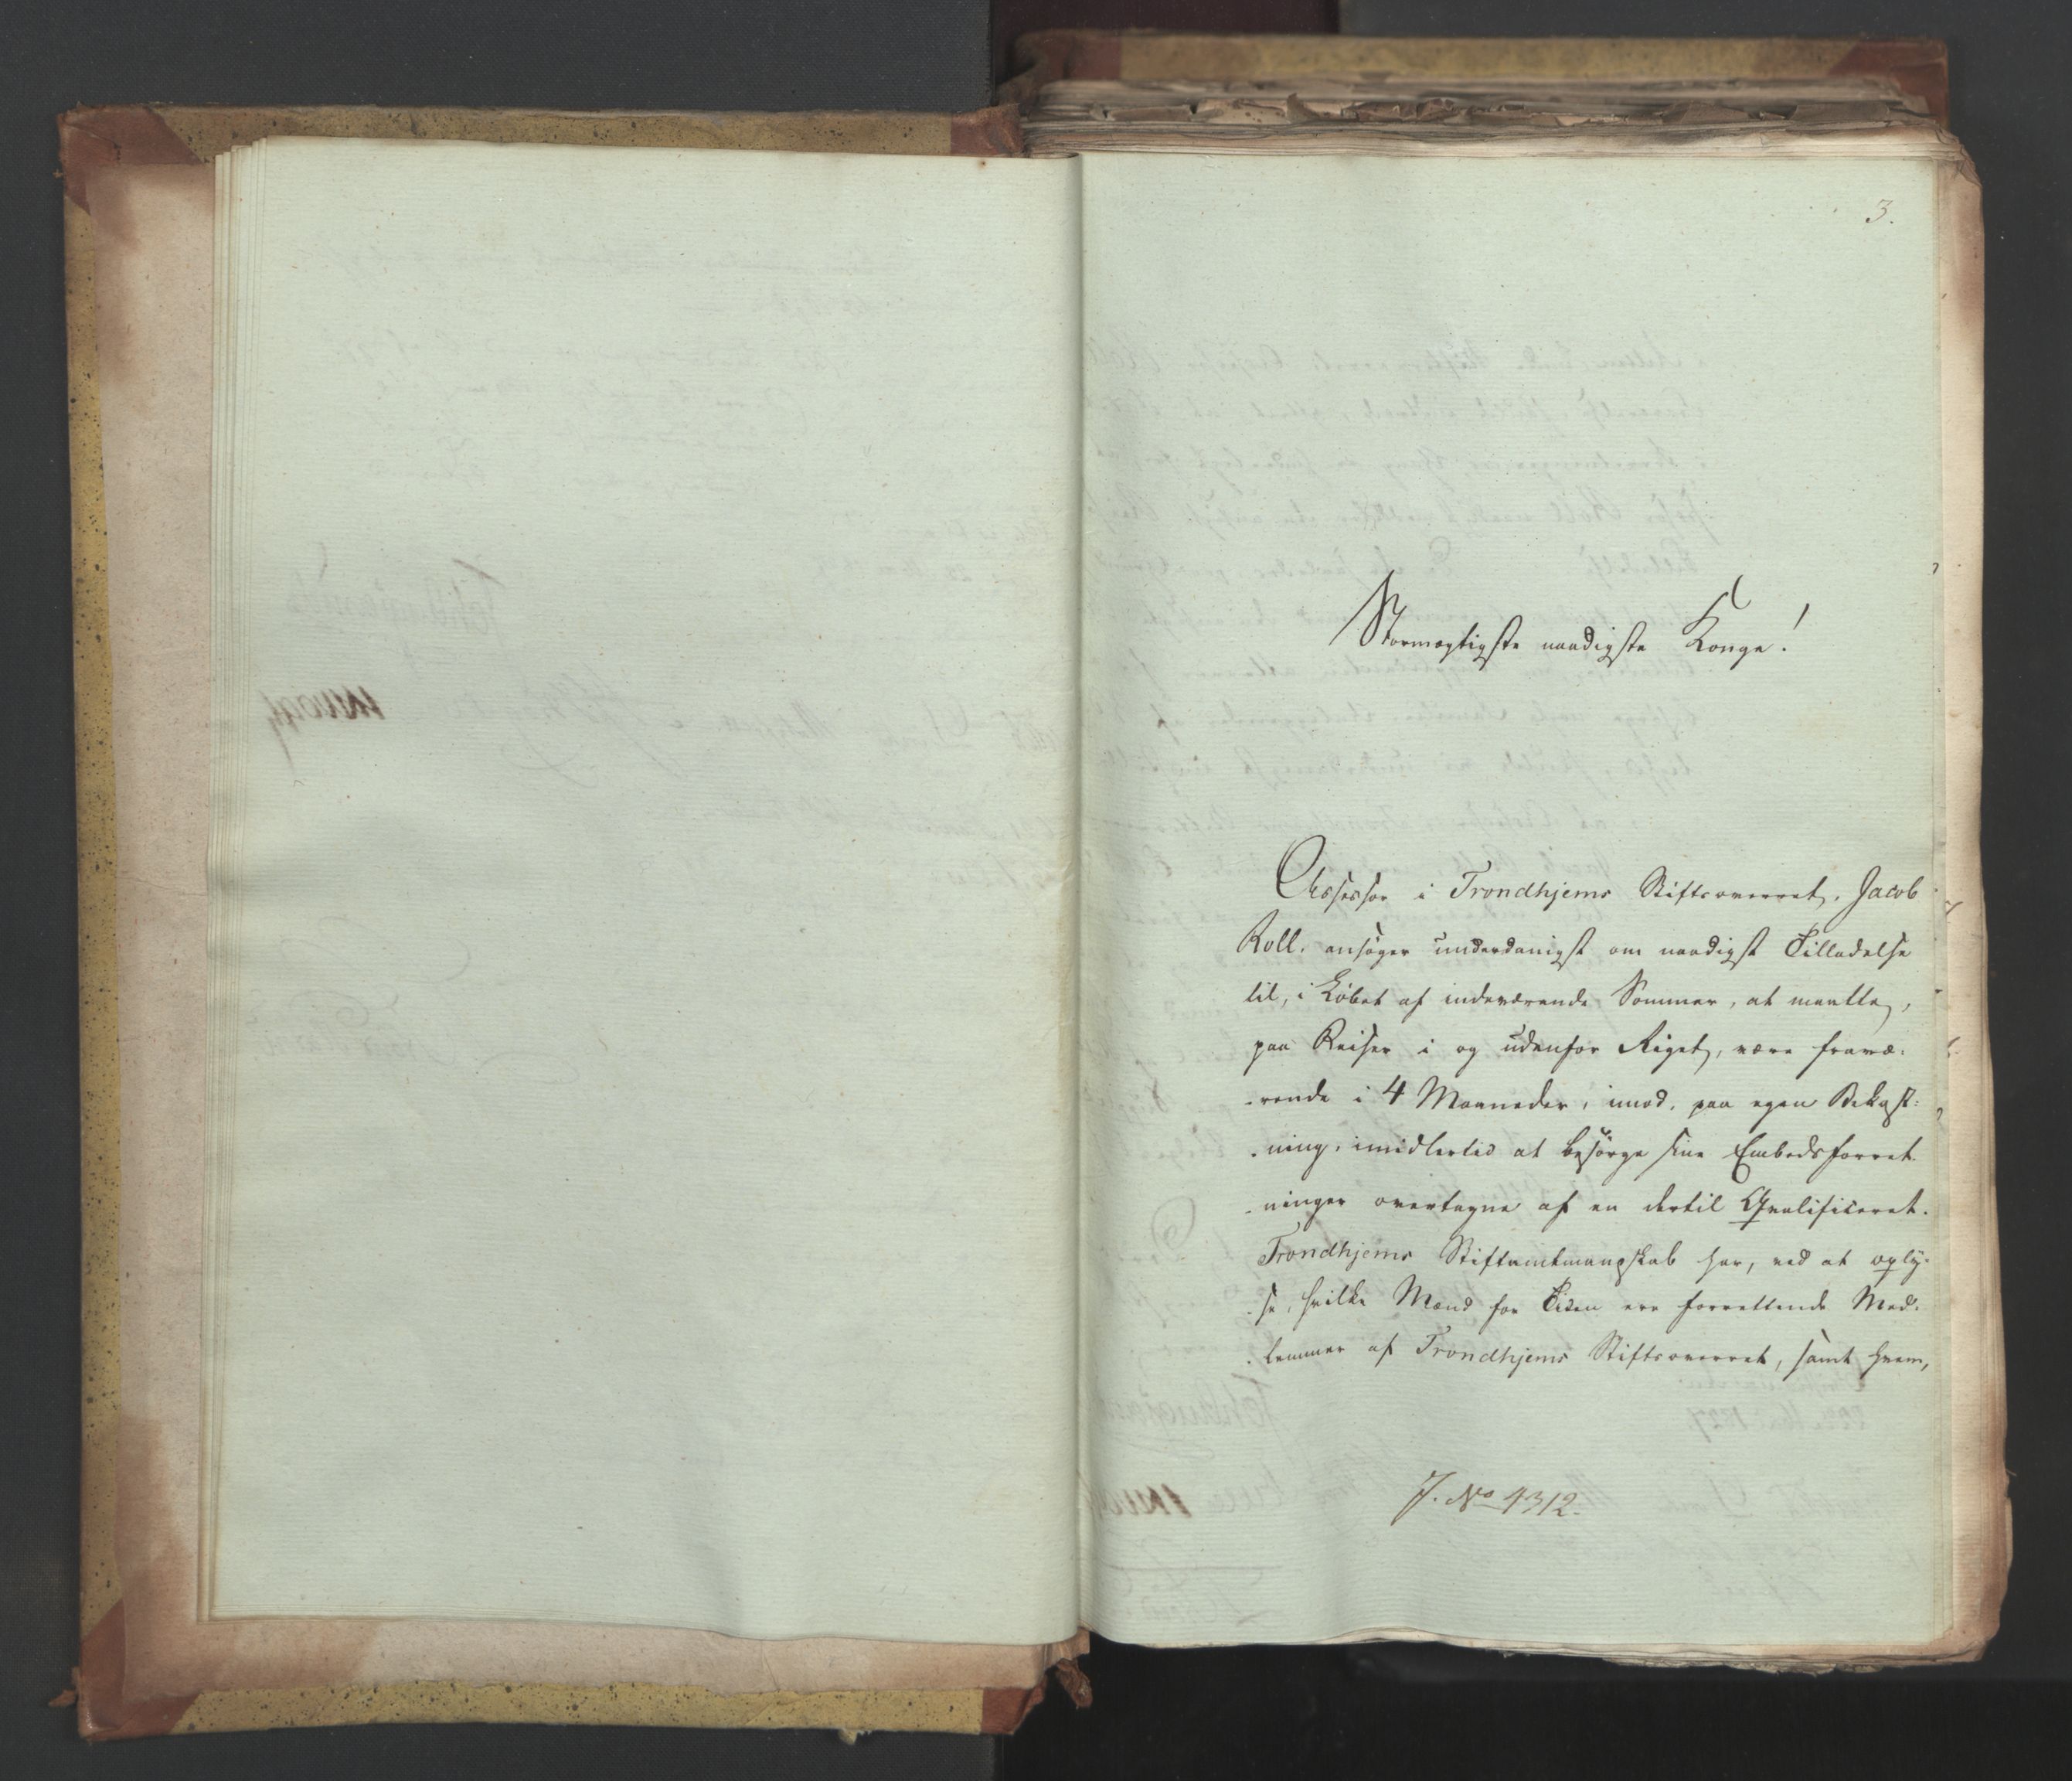 3.
Stormægtigste naadigste Konge!
Assessor i Trondhjems Stiftsoverret, Jacob
Roll, ansøger underdanigst om naadigst Tilladelse
til, i Løbet af indeværende Sommer, at maatte,
paa Reiser i og udenfor Riget, være fravæ-
-rende i 4 Maaneder, imod, paa egen Bekost-
-ning, imidlertid at besørge sine Embedsforret-
-ninger overtagne af en dertil Qvalificeret.
Trondhjems Stiftamtmandskab har, ved at oply-
-se, hvilke Mænd for Tiden ere forrettende Med-
-lemmer af Trondhjems Stiftsoverret, samt hvem,
J. No 4312.